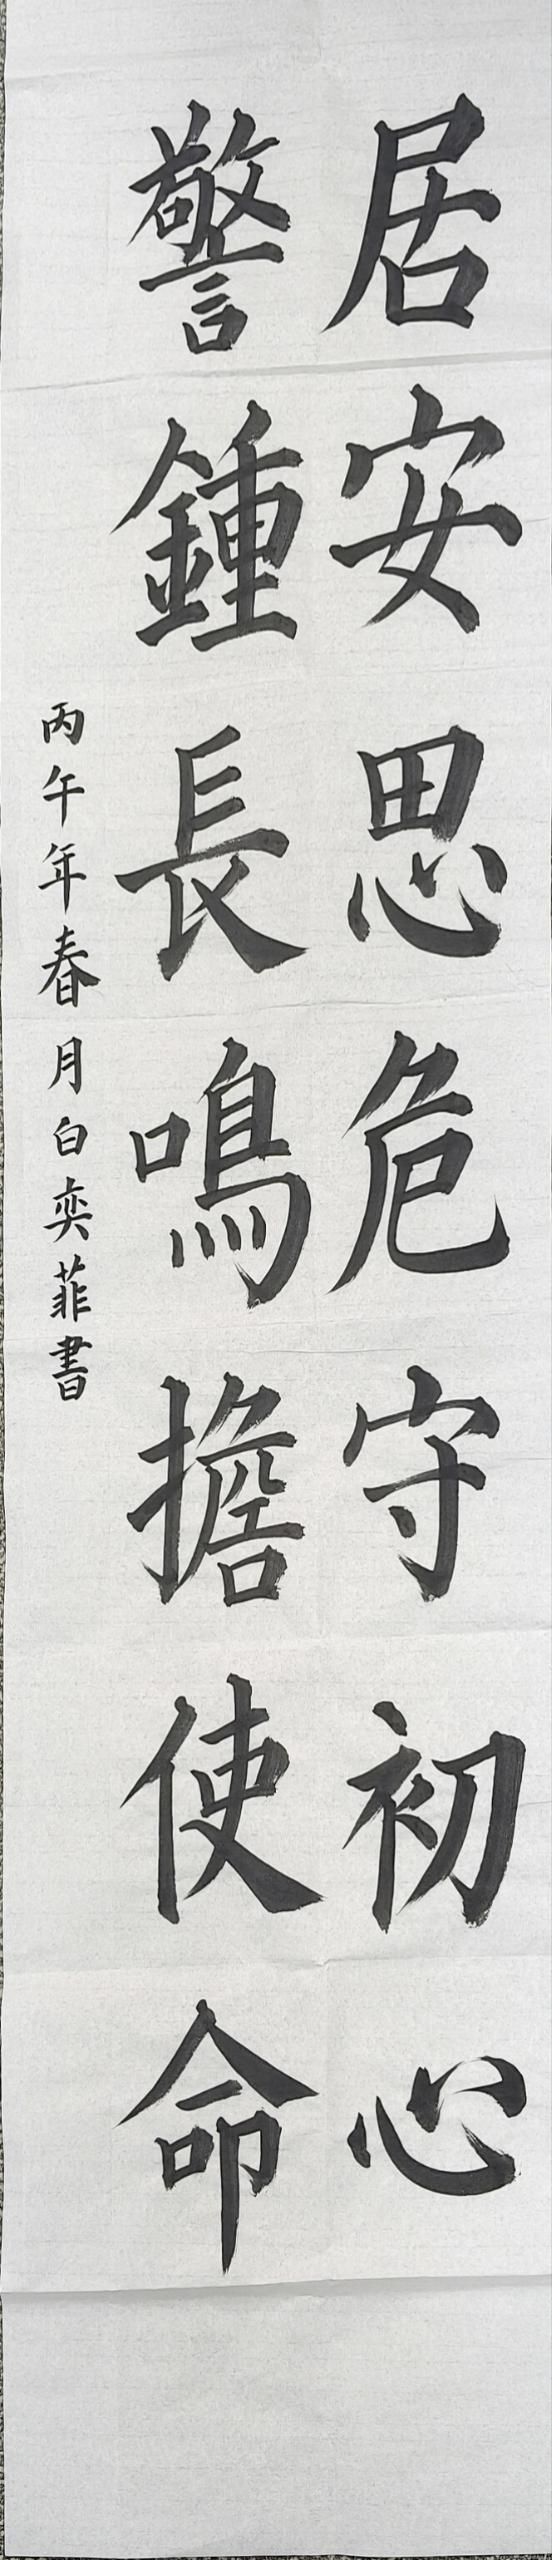 居安思危守初心
警鍾長鳴擔使命
丙午年春月白奕菲書